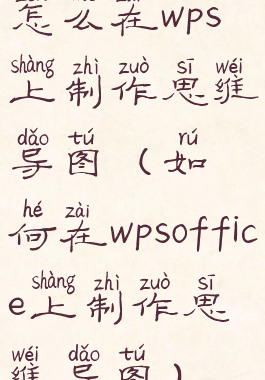 怎么在wps
shàng zhì zuò sī wéi
上制作思维
dǎo tú rú
导图（如
hé zài
何在wpsoffic
shàng zhì zuò sī
e上制作思
wéi dǎo tú
维导图）